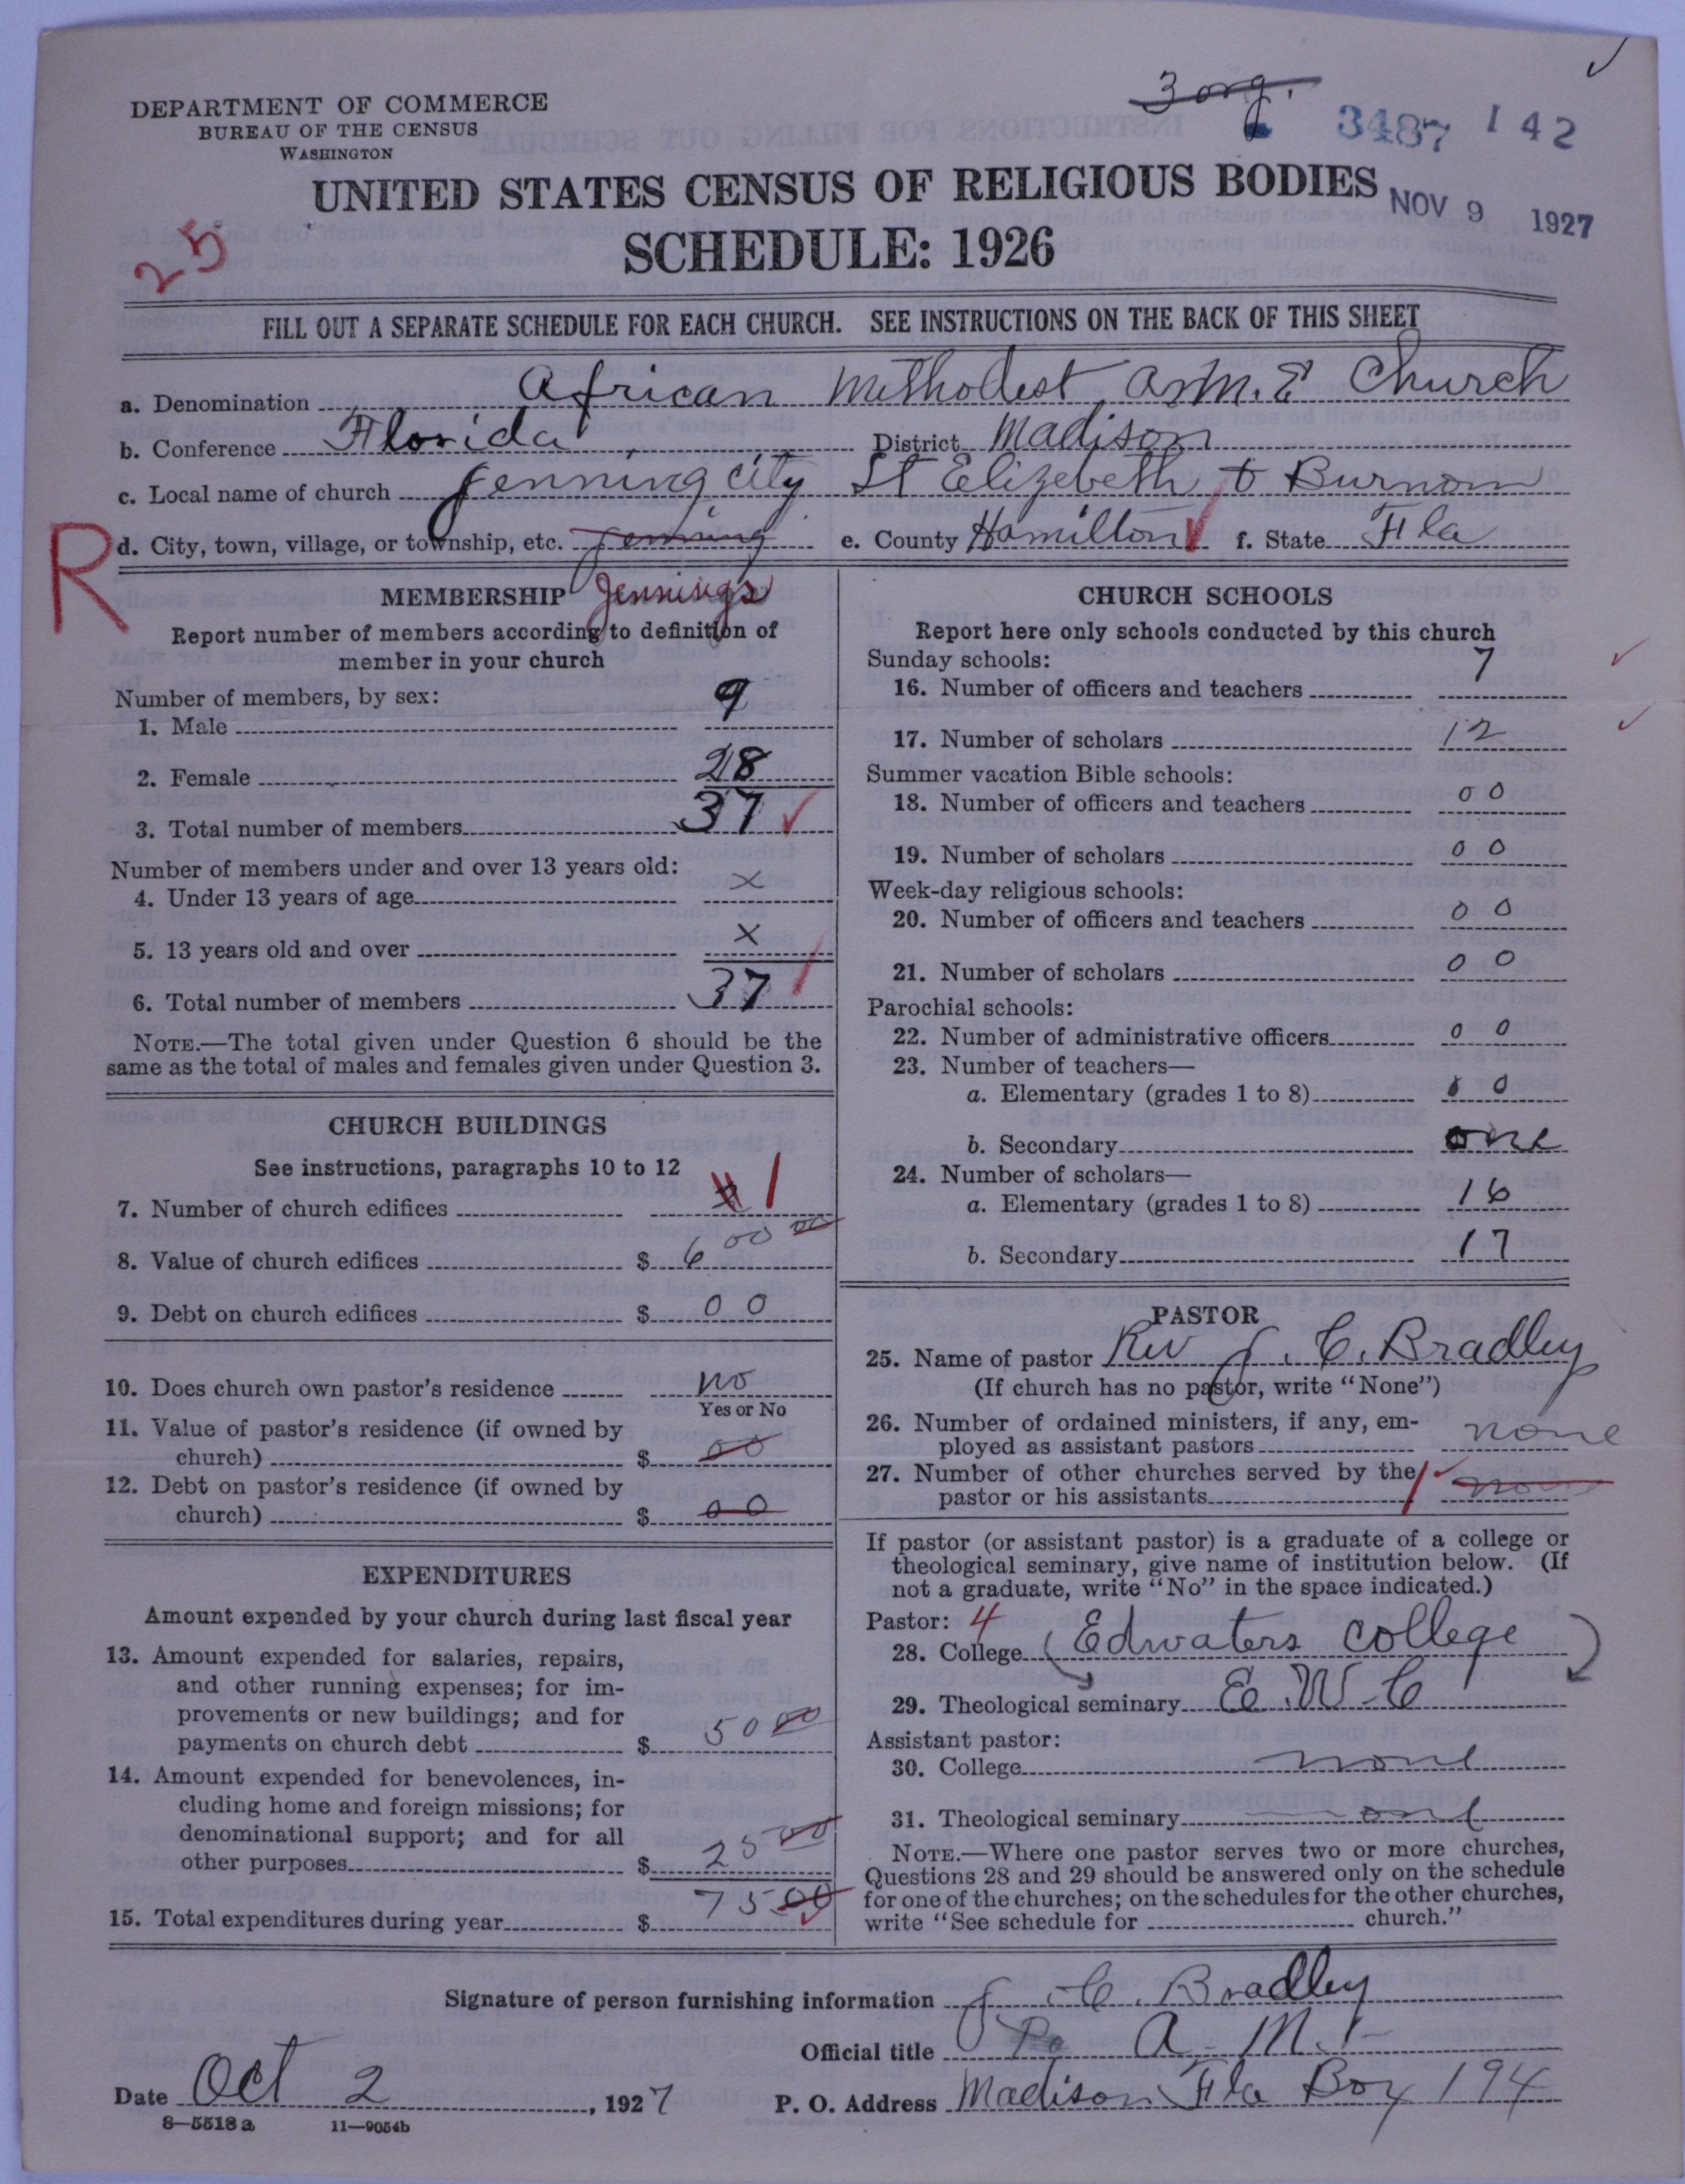 3 org.
3487 142
DEPARTMENT OF COMMERCE
BUREAU OF THE CENSUS
WASHINGTON
UNITED STATES CENSUS OF RELIGIOUS BODIES
NOV 9 1927
25
SCHEDULE: 1926
FILL OUT A SEPARATE SCHEDULE FOR EACH CHURCH. SEE INSTRUCTIONS ON THE BACK OF THIS SHEET
a. Denomination African Methodest A.M.E Church
b. Conference Florida District Madison
c. Local name of church Jenning city St Elizebeth & Burnom
R
d. City, town, village, or township, etc. Jenning e. County Hamilton f. State Fla
Jennings
MEMBERSHIP
Report number of members according to definition of
member in your church
Number of members, by sex:
1. Male 9
2. Female 28
3. Total number of members 37
Number of members under and over 13 years old:
4. Under 13 years of age x
5. 13 years old and over x
6. Total number of members 37
NOTE.—The total given under Question 6 should be the
same as the total of males and females given under Question 3.
CHURCH BUILDINGS
See instructions, paragraphs 10 to 12
7. Number of church edifices 1
8. Value of church edifices $ 600 00
9. Debt on church edifices $ 00
10. Does church own pastor's residence no
Yes or No
11. Value of pastor's residence (if owned by
church) $ 00
12. Debt on pastor's residence (if owned by
church) $ 00
EXPENDITURES
Amount expended by your church during last fiscal year
13. Amount expended for salaries, repairs,
and other running expenses; for im-
provements or new buildings; and for
payments on church debt $ 50 00
14. Amount expended for benevolences, in-
cluding home and foreign missions; for
denominational support; and for all
other purposes $ 25 00
15. Total expenditures during year $ 75 00
CHURCH SCHOOLS
Report here only schools conducted by this church
Sunday schools:
16. Number of officers and teachers 7
17. Number of scholars 12
Summer vacation Bible schools:
18. Number of officers and teachers 00
19. Number of scholars 00
Week-day religious schools:
20. Number of officers and teachers 00
21. Number of scholars 00
Parochial schools:
22. Number of administrative officers 00
23. Number of teachers—
a. Elementary (grades 1 to 8) 00
b. Secondary one
24. Number of scholars—
a. Elementary (grades 1 to 8) 16
b. Secondary 17
PASTOR
25. Name of pastor Rev J. C. Bradley
(If church has no pastor, write "None")
26. Number of ordained ministers, if any, em-
ployed as assistant pastors none
27. Number of other churches served by the
pastor or his assistants 1 none
If pastor (or assistant pastor) is a graduate of a college or
theological seminary, give name of institution below. (If
not a graduate, write "No" in the space indicated.)
Pastor: 4
28. College Edwaters college
29. Theological seminary E. W. C
Assistant pastor:
30. College none
31. Theological seminary none
NOTE.—Where one pastor serves two or more churches,
Questions 28 and 29 should be answered only on the schedule
for one of the churches; on the schedules for the other churches,
write "See schedule for church."
Signature of person furnishing information J. C. Bradley
Official title A. M.
Date Oct 2, 1927 P. O. Address Madison Fla Box 194
8—5518 a 11—9054b